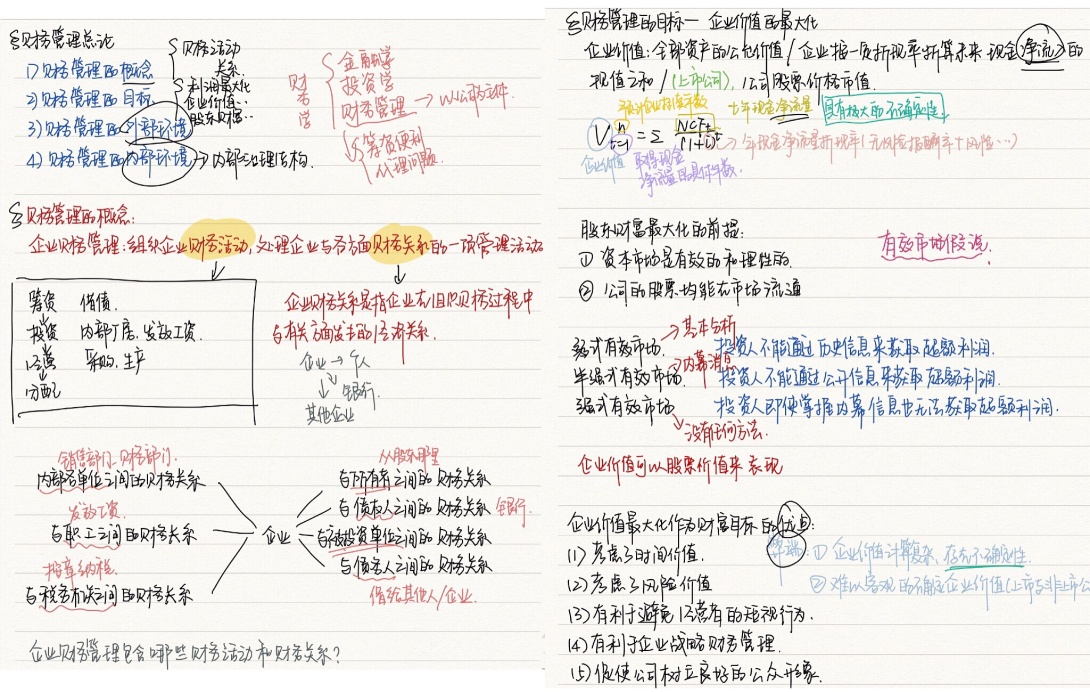 §财务管理总论
1)财务管理的概念
财务活动
关系.
2)财务管理的目标
利润最大化
企业价值..
股东财富..
3)财务管理的外部环境
4)财务管理的内部环境→内部治理结构.
财务学
金融学
投资学
财务管理 → 以公司为主体.
筹资便利
代理问题.
§财务管理的概念:
企业财务管理:组织企业财务活动,处理企业与各方面财务关系的一项管理活动
筹资 借债.
投资 内部厂房,发放工资.
经营 采购,生产
分配
企业财务关系是指企业在组织财务过程中
与有关方面发生的经济关系.
企业 → 个人
银行.
其他企业
销售部门、财务部门.
内部各单位之间的财务关系
发放工资.
与职工之间的财务关系
按章纳税.
与税务机关之间的财务关系
企业
从股东那里
与所有者之间的财务关系
与债权人之间的财务关系 银行.
与被投资单位之间的财务关系
与债务人之间的财务关系
借给其他人/企业.
企业财务管理包含哪些财务活动和财务关系?
§财务管理的目标— 企业价值的最大化
企业价值:全部资产的公允价值/企业按一定折现率折算未来现金净流入的
现值之和/(上市公司),公司股票价格市值.
预计企业持续年数 t年现金净流量 具有极大的不确定性.
V n t=1 =Σ NCFt/(1+i)^t → t年现金净流量折现率(无风险报酬率+风险…)
企业价值 取得现金
净流量的具体年数.
股东财富最大化的前提:
① 资本市场是有效的和理性的. 有效市场假说.
② 公司的股票均能在市场流通
→基本分析
弱式有效市场. 投资人不能通过历史信息来获取超额利润.
→内幕消息
半强式有效市场. 投资人不能通过公开信息来获取超额利润.
强式有效市场 投资人即使掌握内幕信息也无法获取超额利润.
→没有任何方法.
企业价值可以股票价值来表现
企业价值最大化作为财富目标的优点:
(1)考虑了时间价值.
(2)考虑了风险价值
(3)有利于避免经营者的短视行为.
(4)有利于企业战略财务管理.
(5)促使公司树立良好的公众形象.
弊端:① 企业价值计算复杂,存在不确定性
② 难以客观的确定企业价值(上市与非上市公